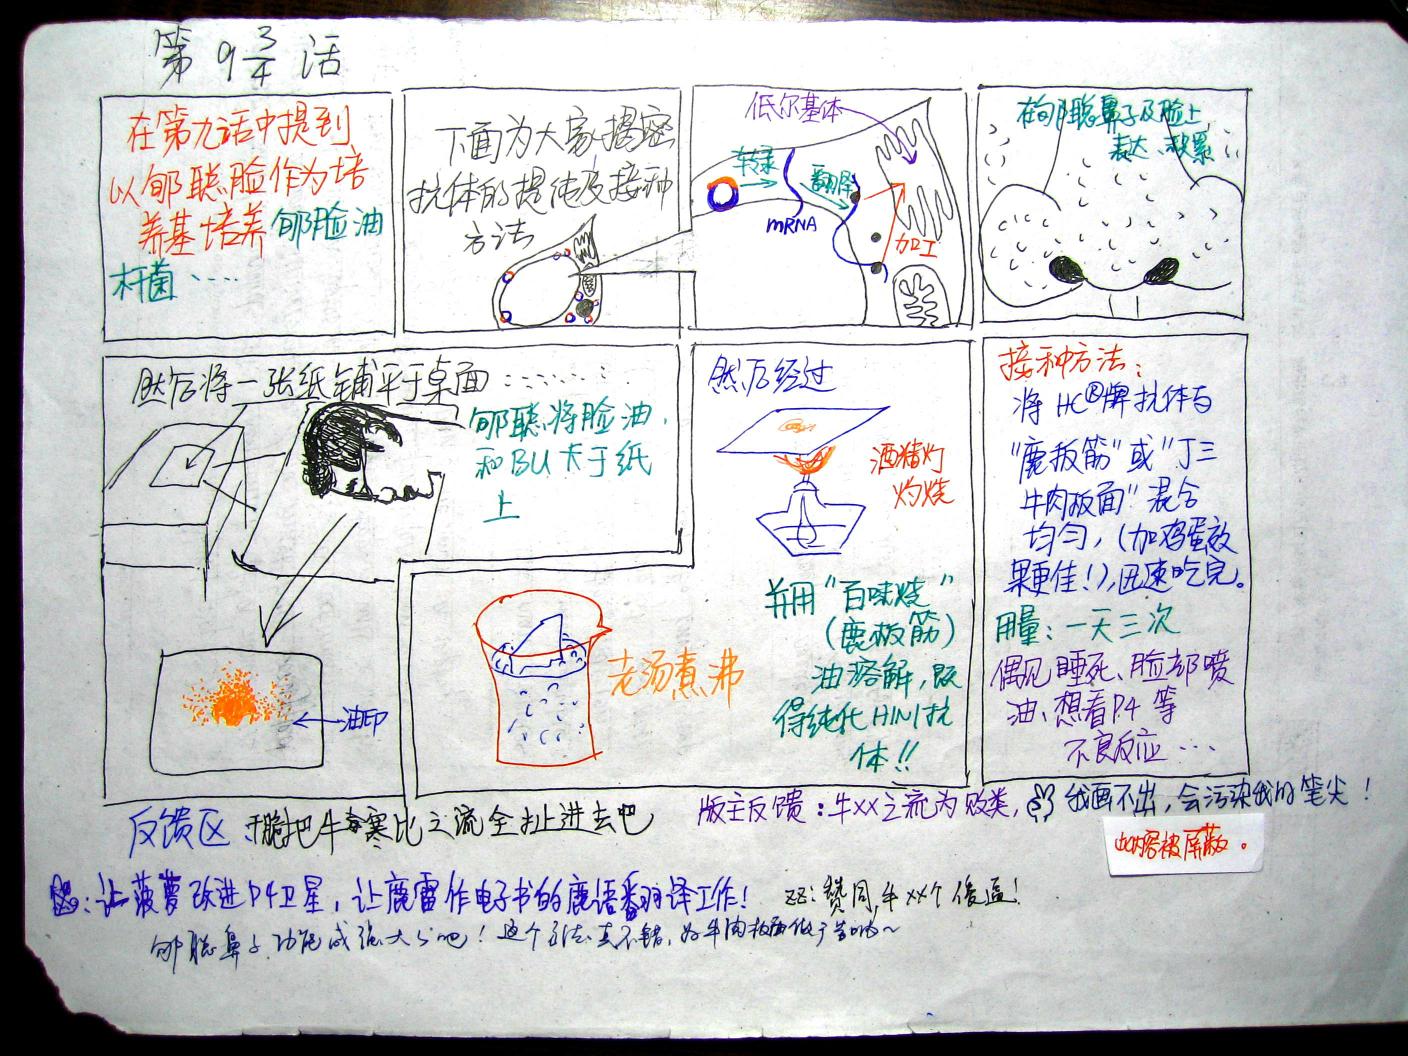 第9 3/4 话
在第九话中提到
以郇聪脸作为培
养基培养郇脸油
杆菌、……
下面为大家揭密
抗体的提纯及接种
方法
低尔基体
转录
翻译
mRNA
加工
在郇聪鼻子及脸上
表达、积累
然后将一张纸铺平于桌面……
郇聪将脸油,
和BU卡于纸
上
油印
然后经过
酒精灯
灼烧
并用"百味烧"
(鹿板筋)
油溶解,既
得纯化H1N1抗
体!!
老汤煮沸
接种方法:
将HC®牌抗体与
"鹿板筋"或"丁三
牛肉板面"混合
均匀,(加鸡蛋效
果更佳!),迅速吃完。
用量:一天三次
偶见睡死、脸部喷
油、想看P4等
不良反应…
反馈区 干脆把牛毒寒比之流全扯进去吧
版主反馈:牛XX之流为败类,我画不出,会污染我的笔尖!
此内容被屏蔽。
:让菠萝改进P4卫星,让鹿雷作电子书的鹿语翻译工作!
ZZ:赞同,牛XX个傻逼!
郇聪鼻子功能成强大了吧!这个方法真不错,